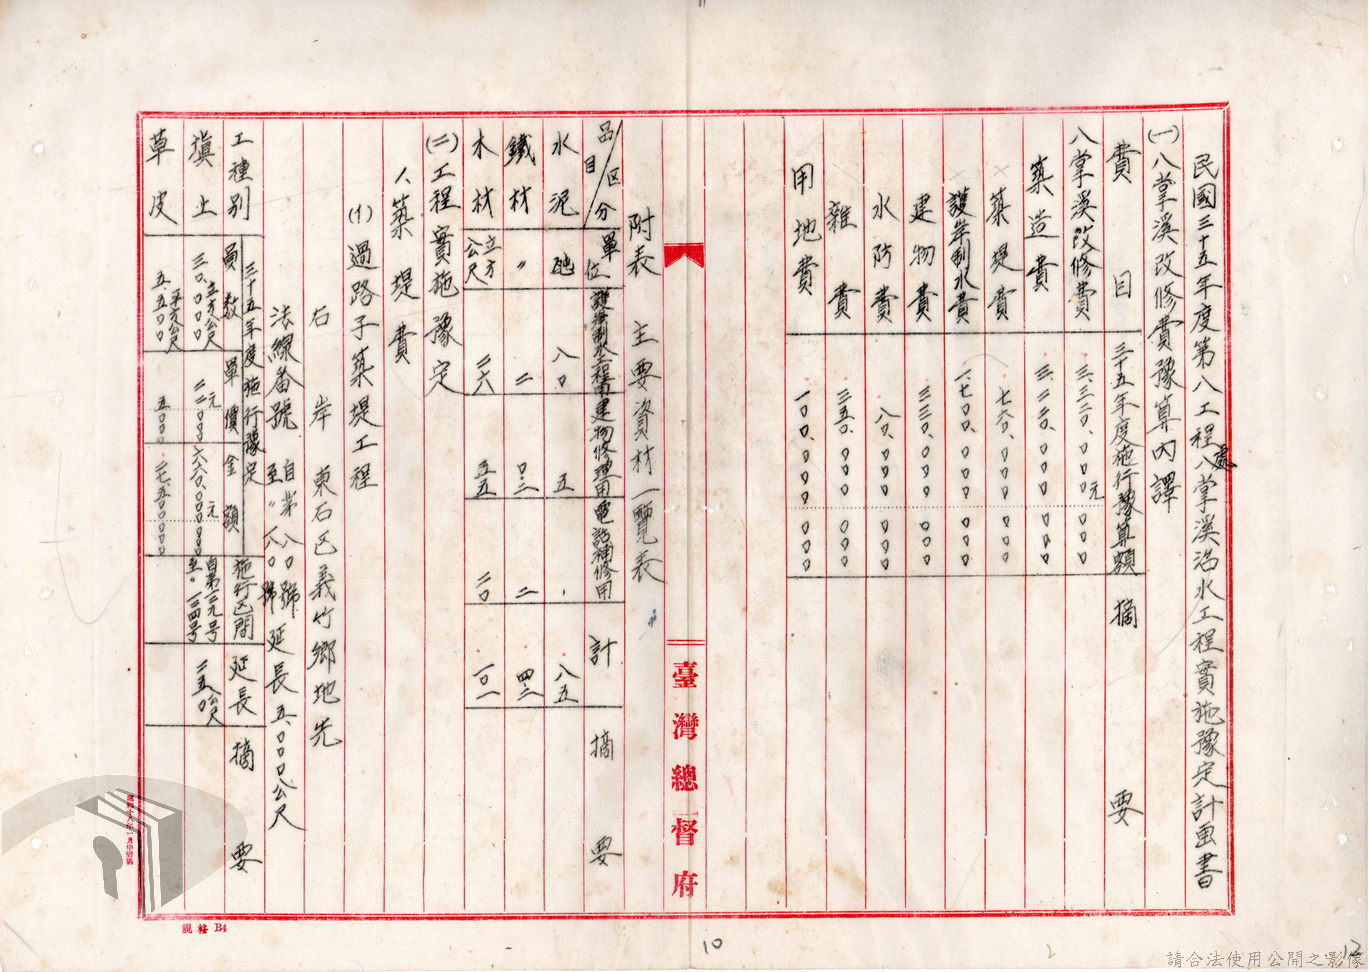 民國三十五年度第八工程處八掌溪治水工程實施豫定計画書
(一)八掌溪改修費豫算內譯
費目 三十五年度施行豫算額 摘要
八掌溪改修費 三.三二〇.〇〇〇元〇〇〇
築造費 三.二二〇.〇〇〇〇〇〇
築堤費 七六〇.〇〇〇〇〇〇
護岸制水費 一.七〇〇.〇〇〇〇〇〇
建物費 三三〇.〇〇〇〇〇〇
水防費 八〇.〇〇〇〇〇〇
雜費 三五〇.〇〇〇〇〇〇
用地費 一〇〇.〇〇〇〇〇〇
臺灣總督府
附表 主要資材一覽表
品目/区分 單位 護岸制水工程用 建物修理用 電話補修用 計 摘要
水泥 瓲 八〇 五 、 八五
鐵材 〃 二 〇.二 二 四.二
木材 立方公尺 二六 五五 二〇 一〇一
(二)工程實施豫定
人築堤費
(1)過路子築堤工程
右岸 東石区義竹鄉地先
法線番號 自第八〇號至〃六〇號 延長五.〇〇〇公尺
工種別 三十五年度施行豫定 員数 單價 金額 施行区間 延長 摘要
填土 三〇.〇〇〇立方公尺 二二元〇〇〇 六六〇.〇〇〇元〇〇〇 自第一二九号至〃一三四号 二五〇公尺
草皮 五.五〇〇平方公尺 五〇〇〇 二七.五〇〇〇〇〇
規格 B4
10
2
12
請合法使用公開之影像